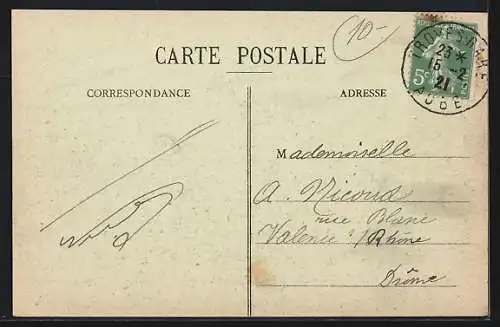 10-
CARTE POSTALE
CORRESPONDANCE
ADRESSE
TROYES GARE
23 *
15 -2
21
AUBE
5c
Mademoiselle
A. Nicoud
rue Blanc
Valence s/ Rhône
Drôme